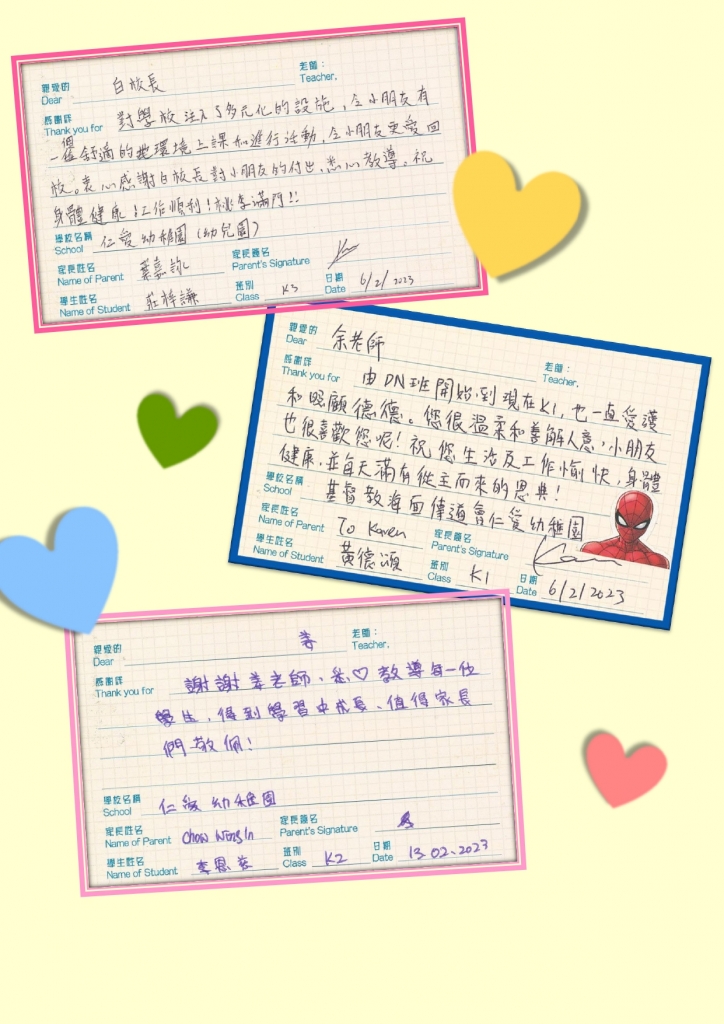 親愛的 Dear 白校長 老師： Teacher,
感謝詳 Thank you for 對學校注入了多元化的設施，令小朋友有
一個舒適的地環境上課和進行活動，令小朋友更愛回
校。衷心感謝白校長對小朋友的付出，悉心教導。祝
身體健康！工作順利！桃李滿門！！
學校名稱 School 仁愛幼稚園（幼兒園）
家長姓名 Name of Parent 葉嘉詠 家長簽名 Parent's Signature
學生姓名 Name of Student 莊梓謙 班別 Class K3 日期 Date 6/2/2023
親愛的 Dear 余老師 老師： Teacher,
感謝詳 Thank you for 由DN班開始，到現在K1，也一直愛護
和照顧德德。您很溫柔和善解人意，小朋友
也很喜歡您呢！祝您生活及工作愉快，身體
健康，並每天滿有從主而來的恩典！
學校名稱 School 基督教海面傳道會仁愛幼稚園
家長姓名 Name of Parent To Karen 家長簽名 Parent's Signature
學生姓名 Name of Student 黃德頌 班別 Class K1 日期 Date 6/2/2023
親愛的 Dear 姜 老師： Teacher,
感謝詳 Thank you for 謝謝姜老師、悉♡教導每一位
學生，得到學習中成長、值得家長
們敬佩！
學校名稱 School 仁愛幼稚園
家長姓名 Name of Parent Chow Wing In 家長簽名 Parent's Signature
學生姓名 Name of Student 李恩 班別 Class K2 日期 Date 13.02.2023